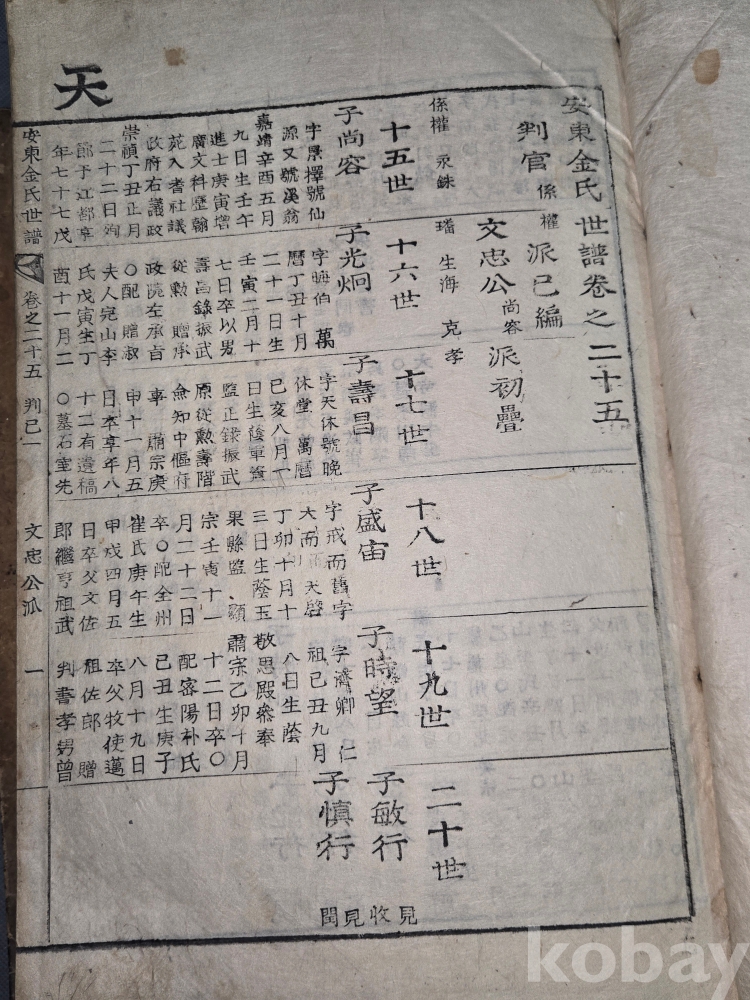 天
安東金氏世譜卷之二十五
判官係權派己編
文忠公尚容派初疊
係權 永銖
璠 生海 克孝
十五世
子尚容
字景擇號仙
源又號溪翁
嘉靖辛酉五月
九日生壬午
進士庚寅增
廣文科歷翰
苑入耆社議
政府右議政
崇禎丁丑正月
二十二日殉
節于江都享
年七十七戊
十六世
子光炯
字晦伯 萬
曆丁丑十月
二十一日生
壬寅二月十
七日卒以男
壽昌錄振武
從勳 贈承
政院左承旨
○配贈淑
夫人完山李
氏戊寅生丁
酉十一月二
十七世
子壽昌
字天休號晚
休堂 萬曆
己亥八月一
日生蔭軍資
監正錄振武
原從勳壽階
僉知中樞府
事 肅宗庚
申十一月五
日卒享年八
十二有遺稿
○墓石室先
十八世
子盛宙
字戒而舊字
大而 天啓
丁卯十月十
三日生蔭玉
果縣監 顯
宗壬寅十一
月二十二日
卒○配全州
崔氏庚午生
甲戌四月五
日卒父文佐
郎繼亨祖武
十九世
子時望
字濟卿 仁
祖己丑九月
八日生蔭
敬思殿參奉
肅宗乙卯十月
十二日卒○
配密陽朴氏
己丑生庚子
八月十九日
卒父牧使邁
祖佐郎 贈
判書孝男曾
二十世
子敏行
子慎行
見收見閏
安東金氏世譜 卷之二十五 判己一 文忠公派 一
kobay